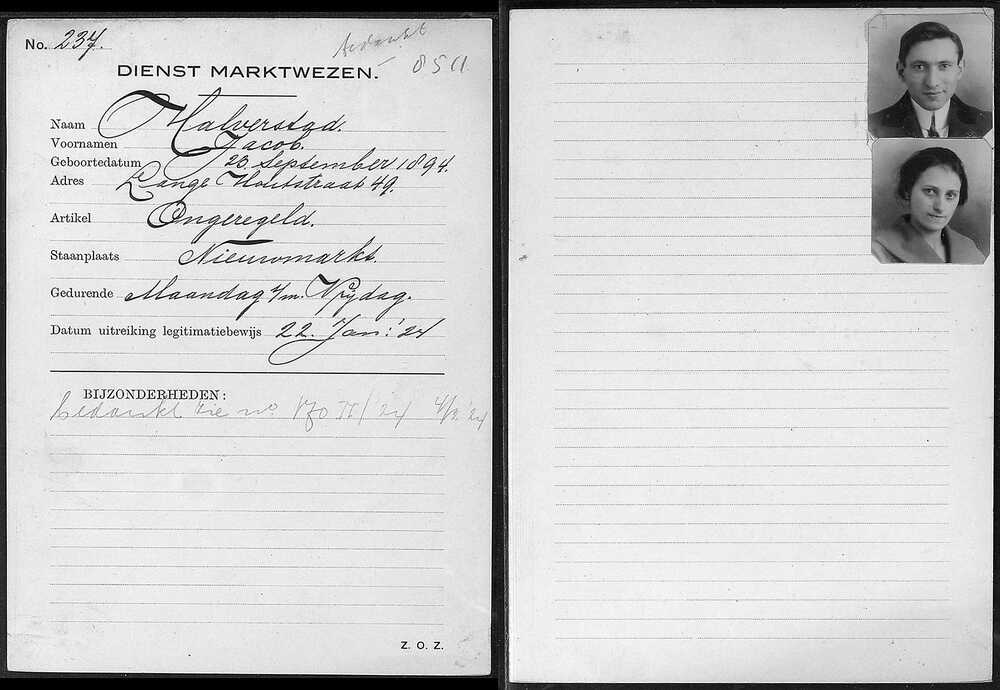 No. 237.
bedankt
8511
DIENST MARKTWEZEN.
Naam Halverstad.
Voornamen Jacob.
Geboortedatum 23 September 1894.
Adres Lange Houtstraat 49.
Artikel Ongeregeld.
Staanplaats Nieuwmarkt.
Gedurende Maandag t/m. Vrijdag.
Datum uitreiking legitimatiebewijs 22. Jan: '24
BIJZONDERHEDEN:
bedankt zie no. 170 / 24 4/2 '24
Z. O. Z.